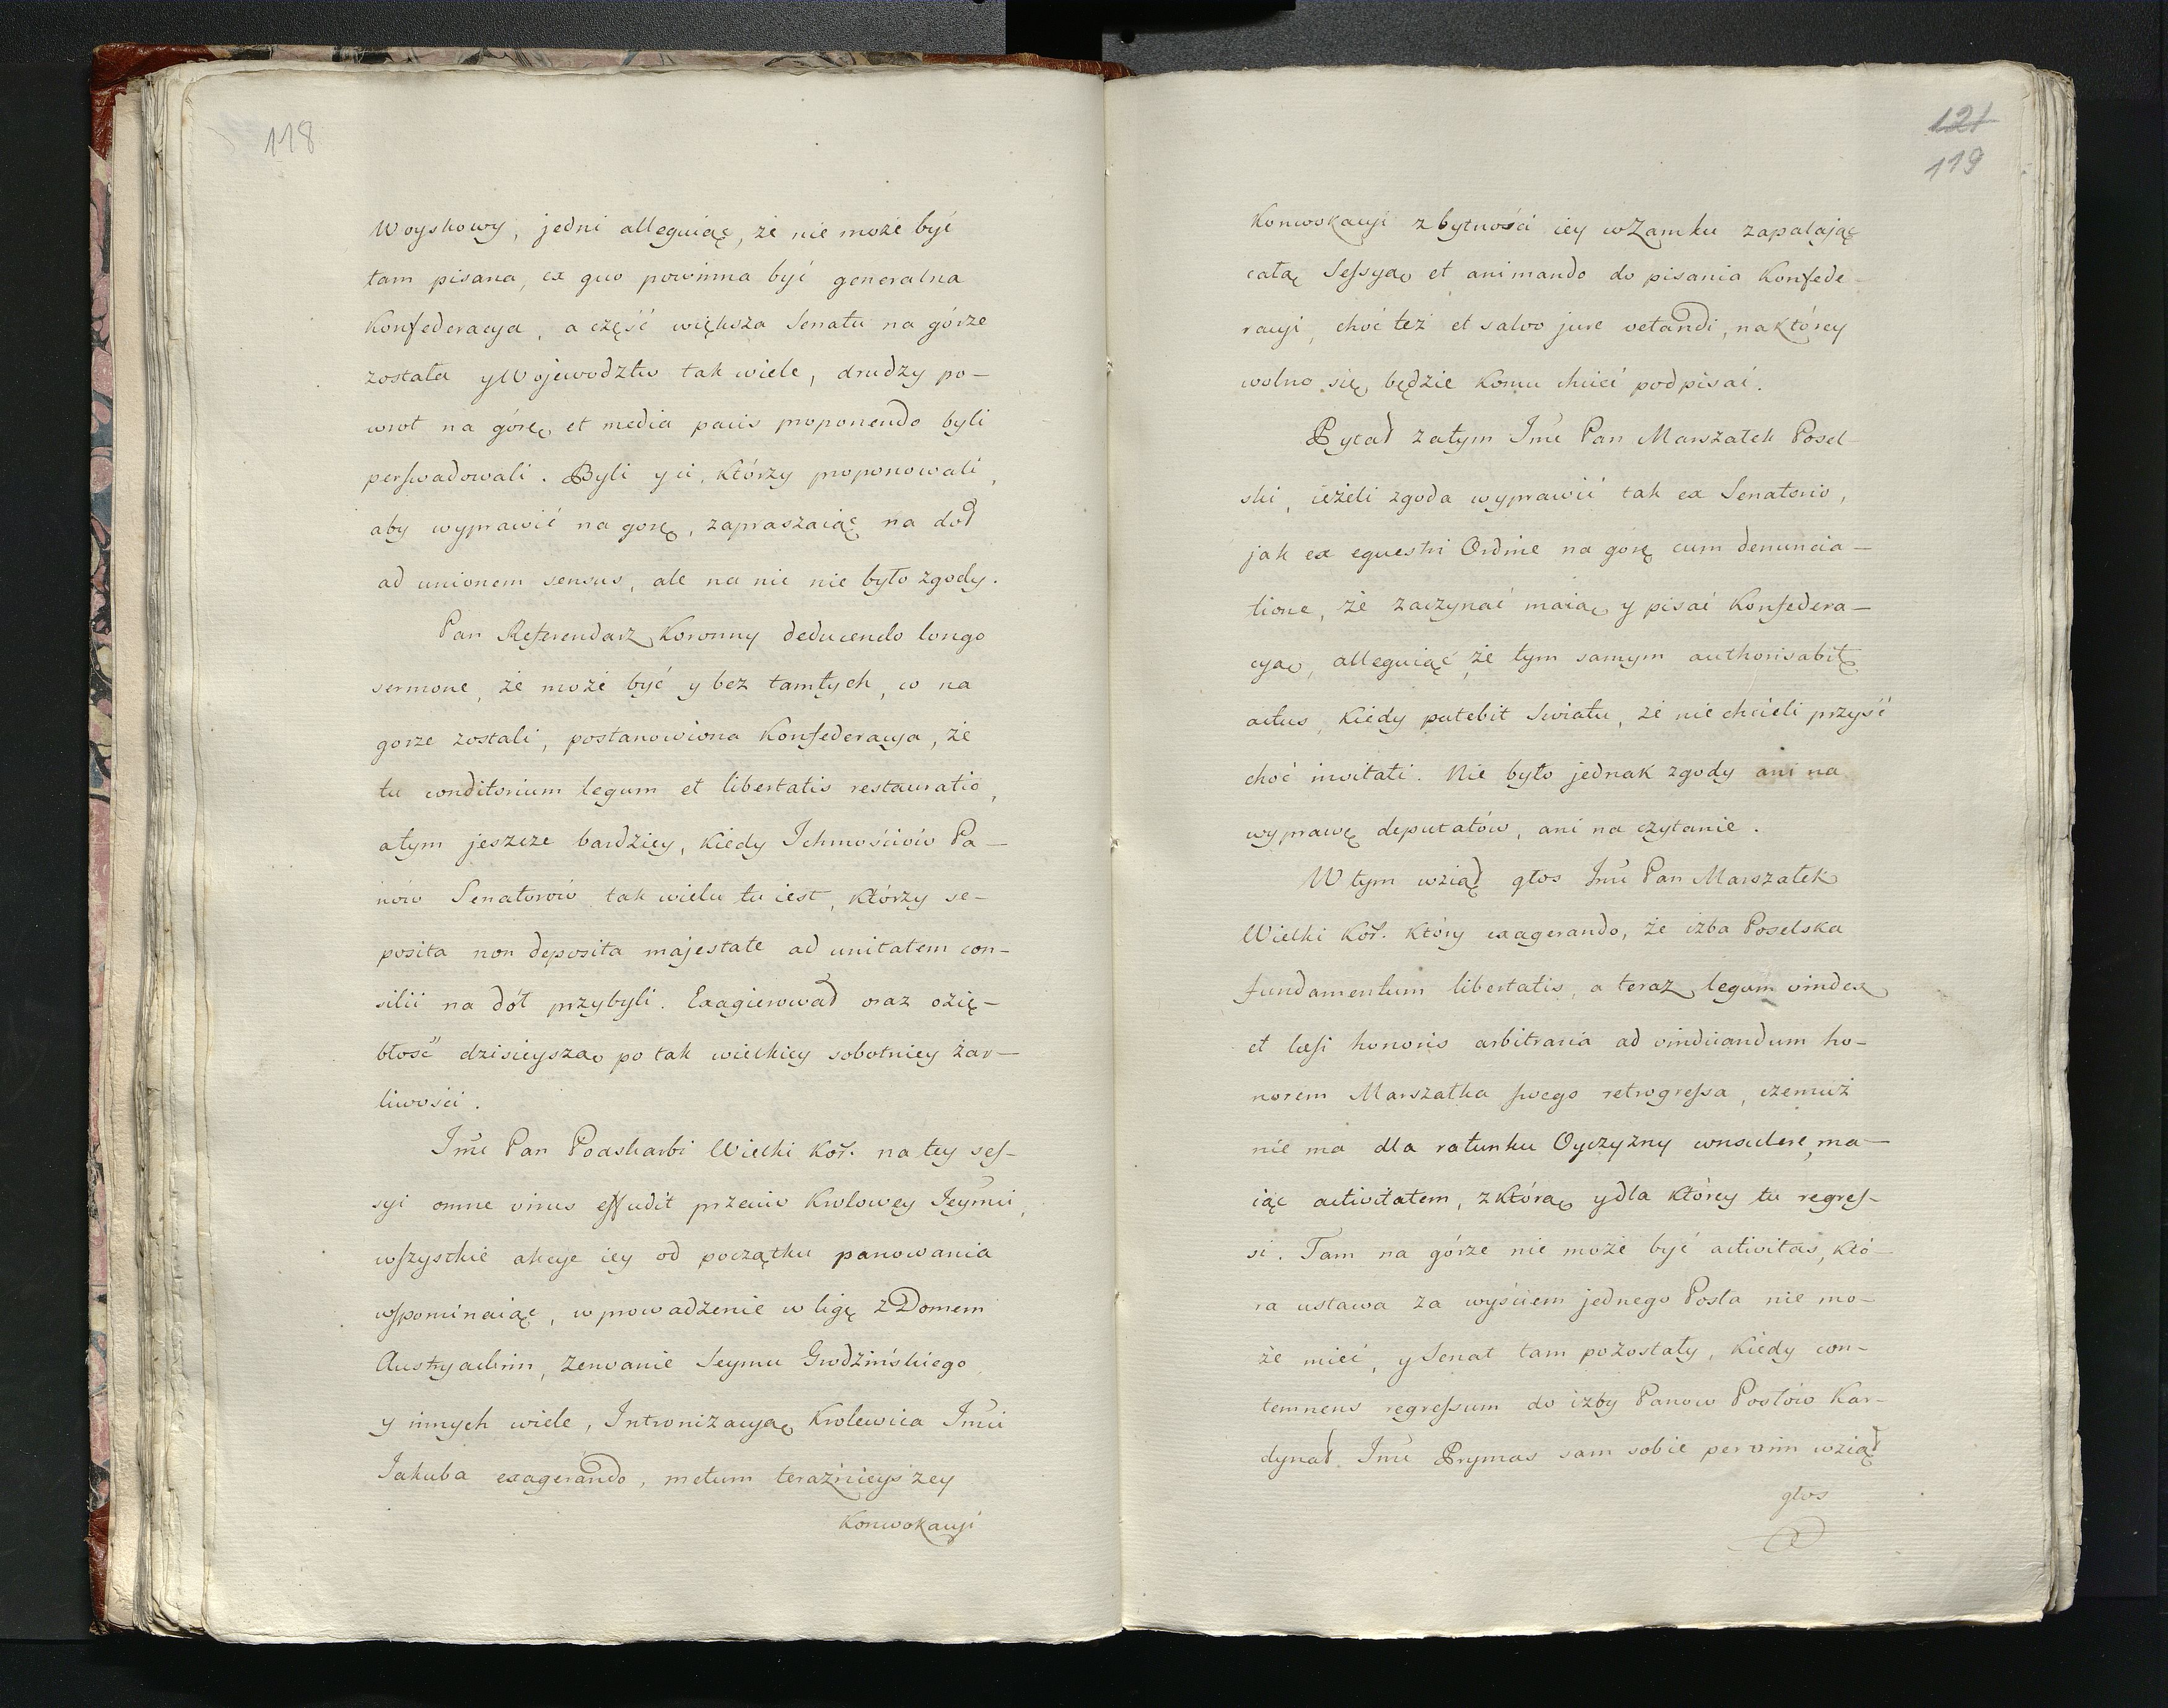 118
Woyskowy, jedni alleguiąc, że nie może być
tam pisana, ex quo powinna być generalna
Konfederacya, a część większa Senatu na górze
została y Wojewodztw tak wiele, drudzy po-
wrot na górę et media pacis proponendo byli
perswadowali. Byli y ci, którzy proponowali,
aby wyprawić na gorę, zapraszaiąc na doł
ad unionem sensus, ale na nic nie było zgody.
Pan Referendarz Koronny deducendo longo
sermone, że może być y bez tamtych, co na
gorze zostali, postanowiona Konfederacya, że
tu conditorium legum et libertatis restauratio,
a tym jeszcze bardziey, kiedy Ichmościów Pa-
nów Senatorów tak wielu tu iest, którzy se-
posita non deposita majestate ad unitatem con-
silii na dół przybyli. Exagierował oraz ozię-
błość dzisieyszą po tak wielkiey sobotniey żar-
liwości.
Imć Pan Podskarbi Wielki Kor. na tey ses-
syi omne virus effudit przeciw Krolowey Jeymci,
wszystkie akcye iey od początku panowania
wspominaiąc, wprowadzenie w ligę z Domem
Austryackim, zerwanie Seymu Grodzińskiego
y innych wiele, Intronizacyą Krolewica Imci
Jakuba exagerando, metum teraźnieyszey
Konwokacyi
121
119
Konwokacyi z bytności iey w Zamku zapalając
całą Sessyą et animando do pisania Konfede-
racyi, choć też et salvo jure vetandi, na którey
wolno się będzie komu chcieć podpisać.
Pytał zatym Imć Pan Marszałek Posel-
ski, ieżeli zgoda wyprawić tak ex Senatorio,
jak ex equestri Ordine na gorę cum denuncia-
tione, że zaczynać maią y pisać Konfedera-
cyą, alleguiąc, że tym samym authorisabit
actus, kiedy patebit Swiatu, że nie chcieli przyść
choć invitati. Nie było jednak zgody ani na
wyprawę deputatów, ani na czytanie.
W tym wziął głos Imć Pan Marszałek
Wielki Kor. który exagerando, że izba Poselska
fundamentum libertatis, a teraz legum vindex
et læsi honoris arbitraria ad vindicandum ho-
norem Marszałka swego retrogressa, czemuż
nie ma dla ratunku Oyczyzny consulere, ma-
iąc activitatem, z którą y dla którey tu regres-
si. Tam na górze nie może być activitas, któ-
ra ustawa za wyściem jednego Posła nie mo-
że mieć, y Senat tam pozostały, kiedy con-
temnens regressum do izby Panow Posłów Kar-
dynał Imć Prymas sam sobie per vim wziął
głos